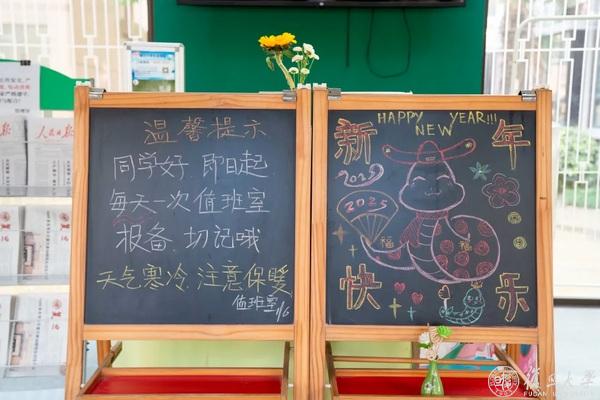 温馨提示
同学好 即日起
每天一次 值班室
报备 切记哦
天气寒冷 注意保暖
值班室 1/6
HAPPY YEAR!!!
NEW
新年
2025
福 福
快乐
人民日报
復旦大學
FUDAN UNIVERSITY